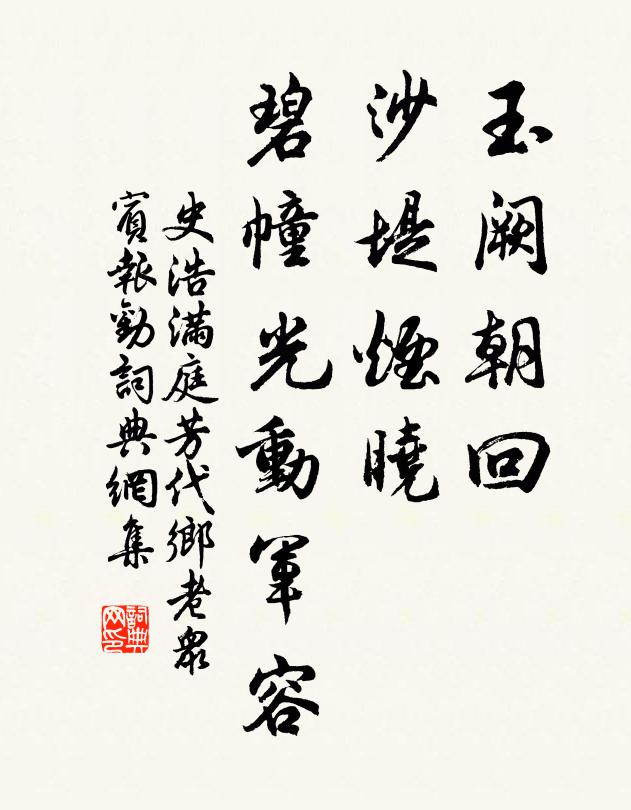 玉阙朝回
沙堤煙曉
碧幢光動軍容
史浩滿庭芳代鄉老衆
賓報勸詞典網集
詞典网印